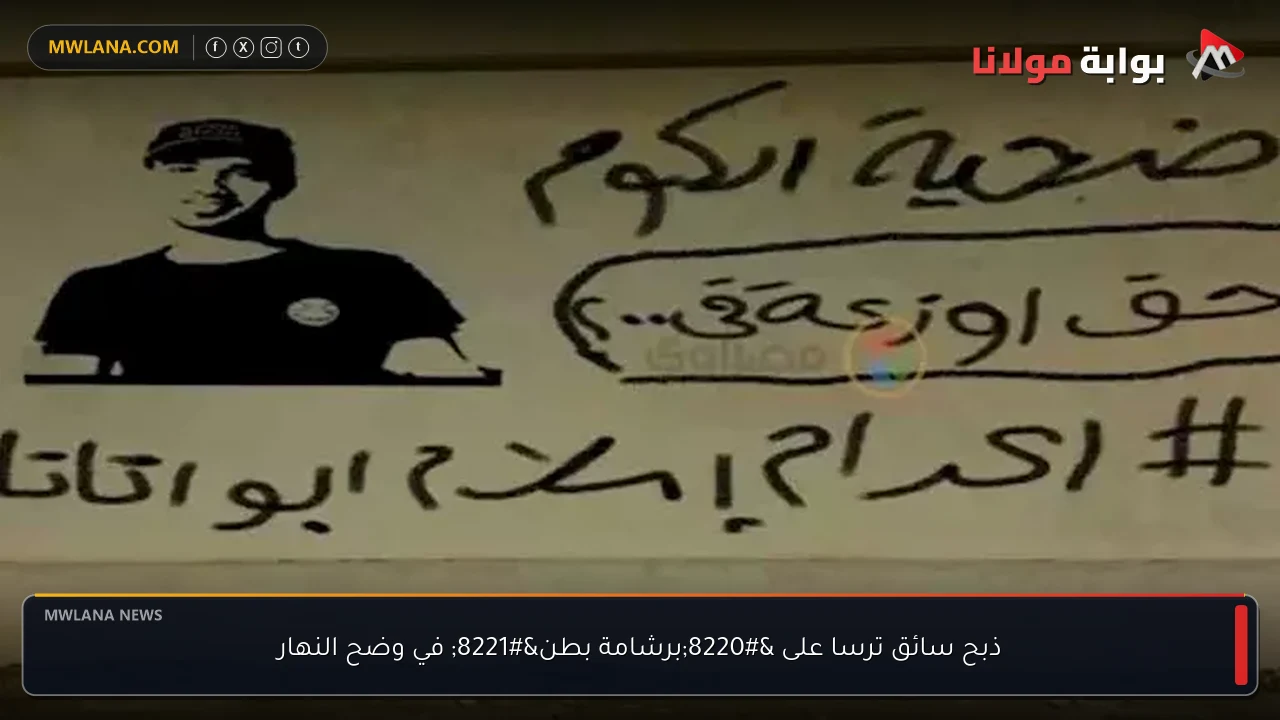 MWLANA.COM
بوابة مولانا
ضحية الكوم
حق اوزعة فى..؟
مصراوي
# اكرام إسلام ابو اتاتا
MWLANA NEWS
ذبح سائق ترسا على &#8220;برشامة بطن&#8221; في وضح النهار